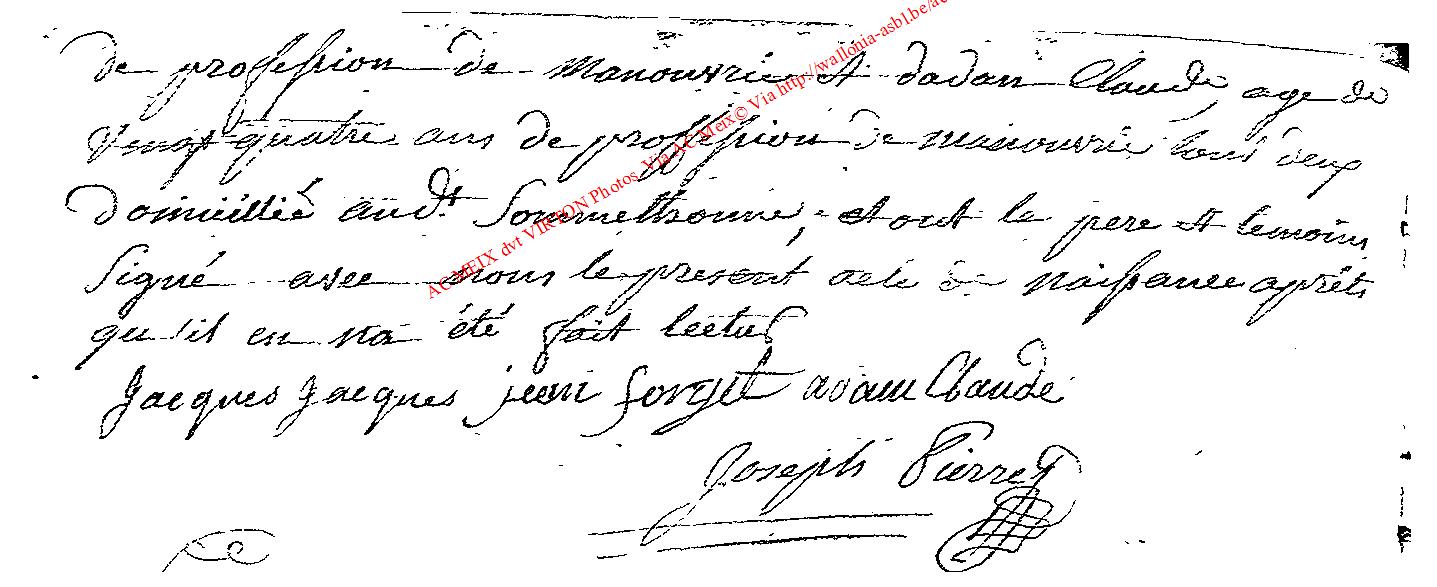 de profession de manouvrie et dadam Claude, age de
vingt quatre ans de profession de manouvrie tous deux
domicilié aud.t Sommethonne, et ont le pere et temoins
Signé avec nous le present acte de naissance aprêts
qu'il en na été fait lectur
Jacques Jacques jean forget adam Claude
Joseph Pierret
ACMEIX dvt VIRTON Photos Via ACMeix© Via http://wallonia-asbl.be/ac